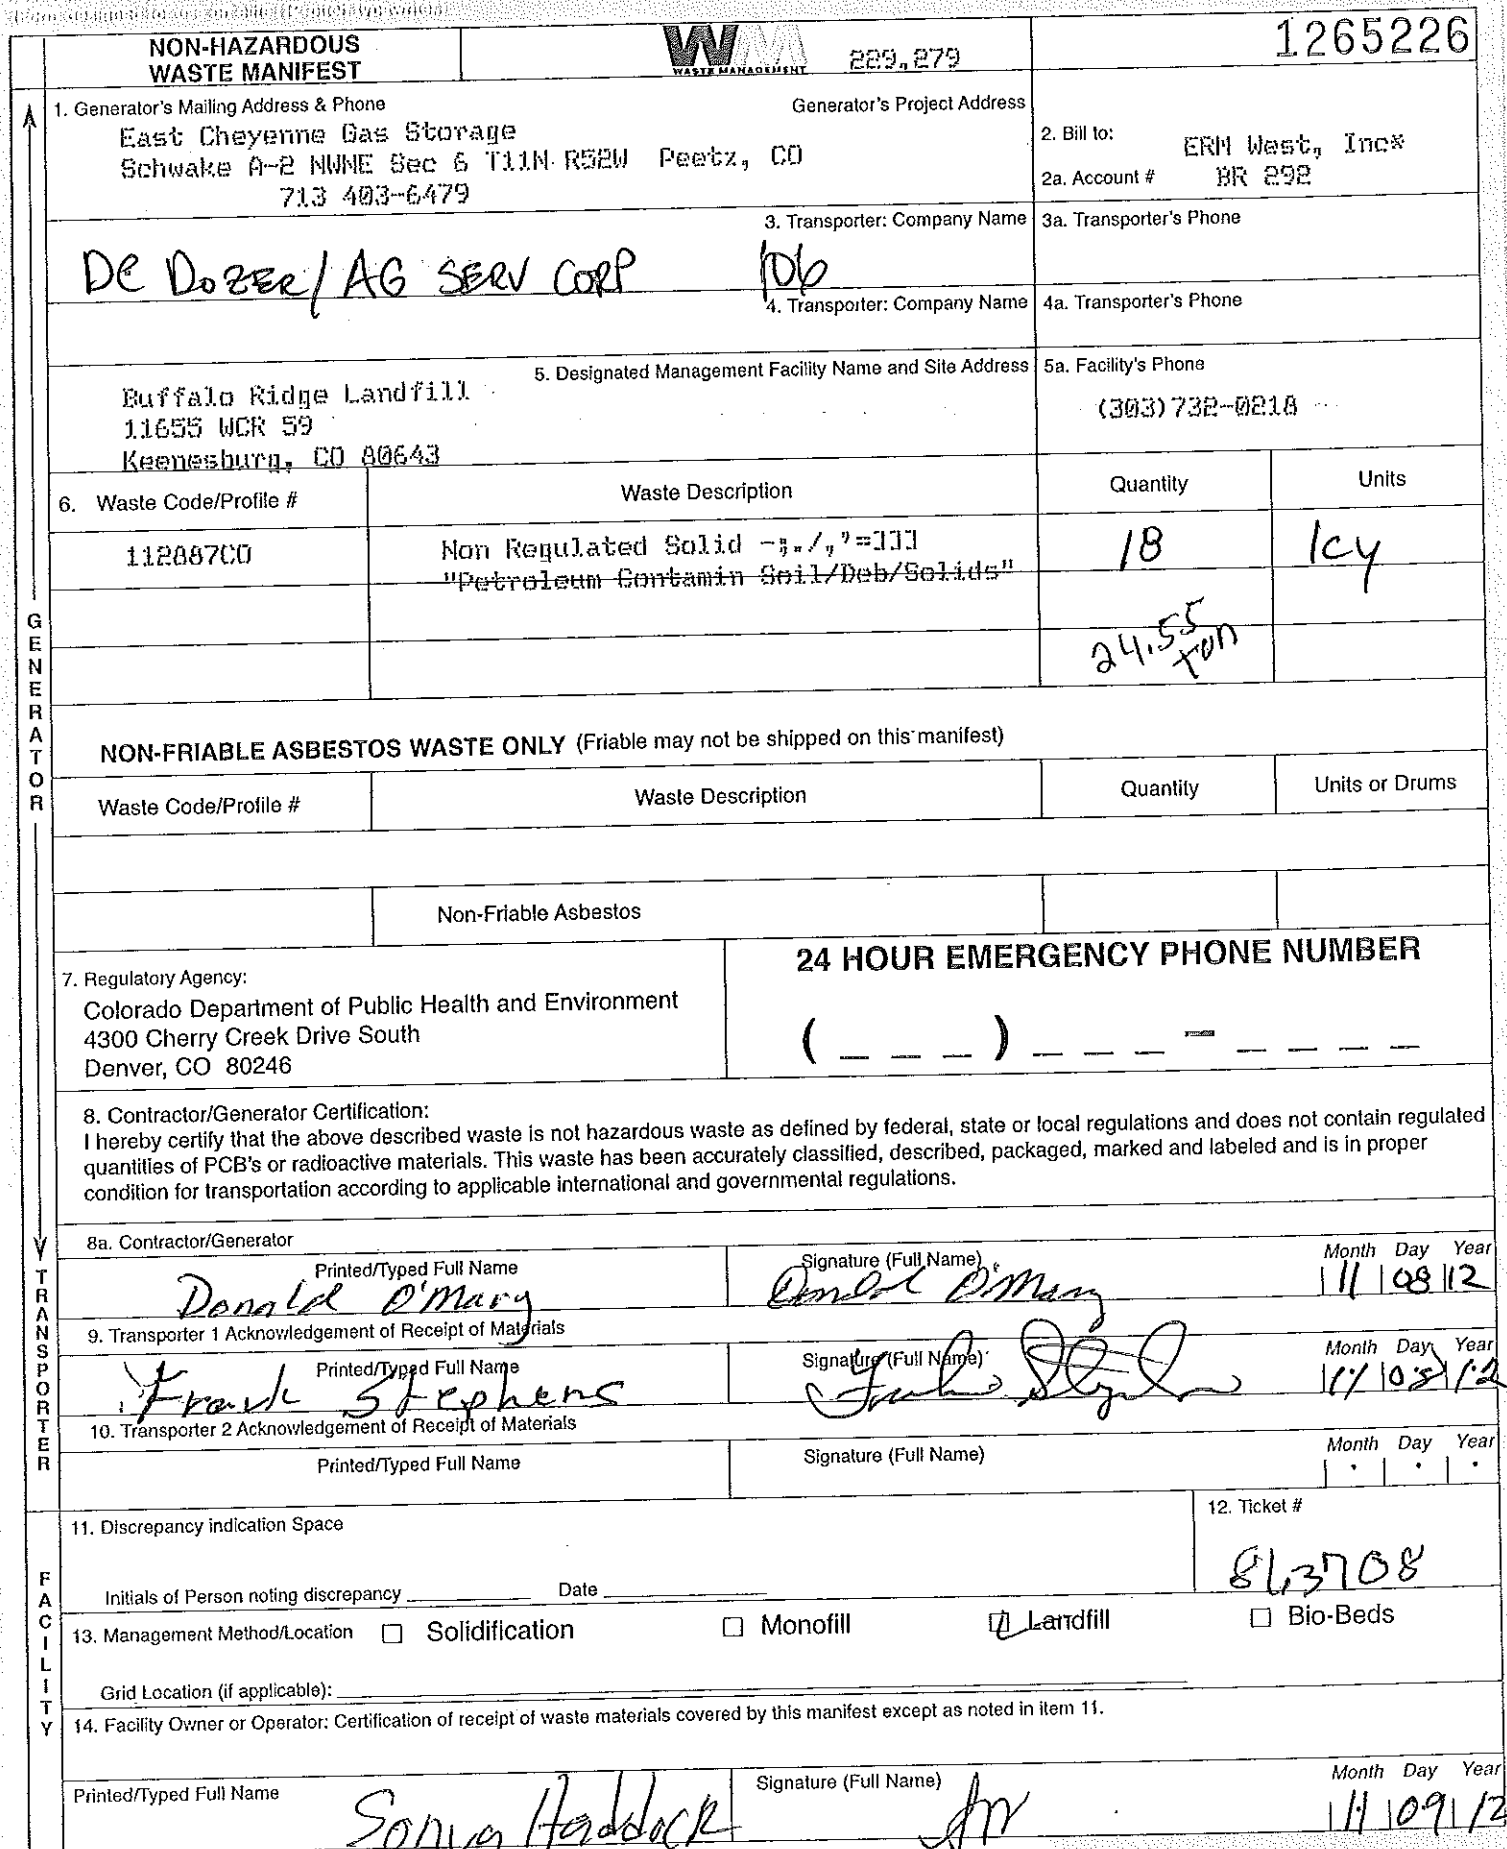 NON-HAZARDOUS
WASTE MANIFEST
WM
WASTE MANAGEMENT
229,279
1265226
1. Generator's Mailing Address & Phone
Generator's Project Address
East Cheyenne Gas Storage
Schwake A-2 NWNE Sec 6 T11N R52W Peetz, CO
713 403-6479
2. Bill to:
ERM West, Inc*
2a. Account #
BR 292
3. Transporter: Company Name
3a. Transporter's Phone
DC DOZER/AG SERV CORP 106
4. Transporter: Company Name
4a. Transporter's Phone
5. Designated Management Facility Name and Site Address
5a. Facility's Phone
Buffalo Ridge Landfill
11655 WCR 59
Keenesburg, CO 80643
(303)732-0218
6. Waste Code/Profile #
Waste Description
Quantity
Units
112887CO
Non Regulated Solid -;./,'=]]]
"Petroleum Contamin Soil/Deb/Solids"
18
cy
24.55
ton
NON-FRIABLE ASBESTOS WASTE ONLY (Friable may not be shipped on this manifest)
Waste Code/Profile #
Waste Description
Quantity
Units or Drums
Non-Friable Asbestos
7. Regulatory Agency:
Colorado Department of Public Health and Environment
4300 Cherry Creek Drive South
Denver, CO 80246
24 HOUR EMERGENCY PHONE NUMBER
( _ _ _ ) _ _ _ - _ _ _ _
8. Contractor/Generator Certification:
I hereby certify that the above described waste is not hazardous waste as defined by federal, state or local regulations and does not contain regulated
quantities of PCB's or radioactive materials. This waste has been accurately classified, described, packaged, marked and labeled and is in proper
condition for transportation according to applicable international and governmental regulations.
8a. Contractor/Generator
Printed/Typed Full Name
Signature (Full Name)
Month Day Year
Donald O'Mary
Donald O'Mary
11 08 12
9. Transporter 1 Acknowledgement of Receipt of Materials
Printed/Typed Full Name
Signature (Full Name)
Month Day Year
Frank Stephens
11 08 12
10. Transporter 2 Acknowledgement of Receipt of Materials
Printed/Typed Full Name
Signature (Full Name)
Month Day Year
11. Discrepancy indication Space
12. Ticket #
863708
Initials of Person noting discrepancy
Date
13. Management Method/Location
Solidification
Monofill
Landfill
Bio-Beds
Grid Location (if applicable):
14. Facility Owner or Operator: Certification of receipt of waste materials covered by this manifest except as noted in item 11.
Printed/Typed Full Name
Signature (Full Name)
Month Day Year
Sonya Haddock
11 09 12
GENERATOR
TRANSPORTER
FACILITY